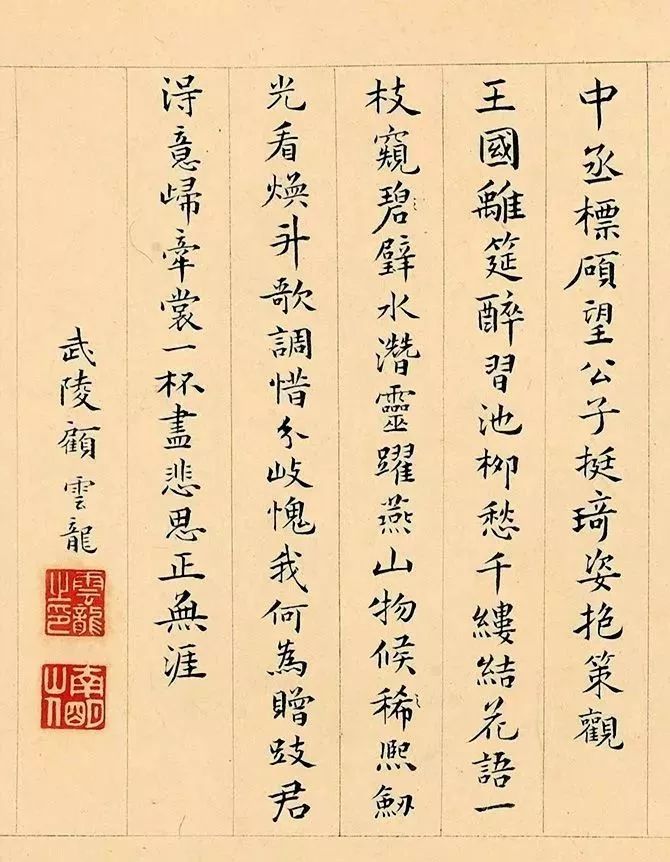 中丞標碩望公子挺琦姿抱策觀
王國離筵醉習池柳愁千縷結花語一
枝窺碧璧水潛靈躍燕山物候稀熈劒
光看煥斗歌調惜分歧愧我何為贈跂君
得意歸牽裳一杯盡悲思正無涯
武陵顧雲龍
雲龍之印